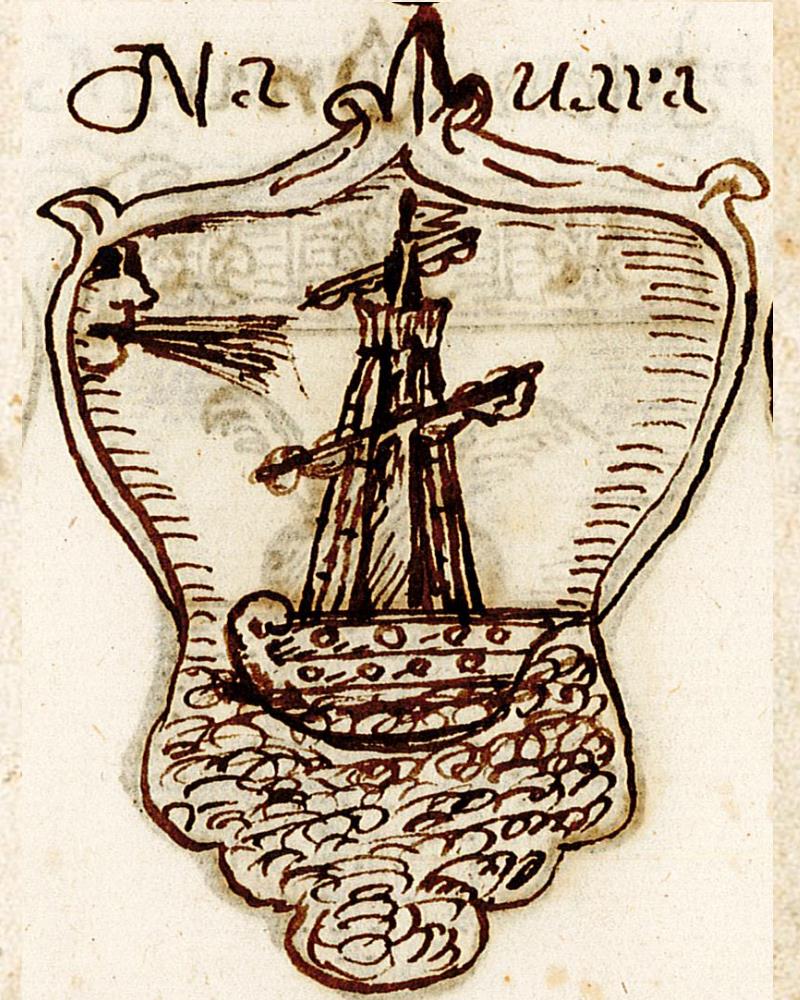 Na uara